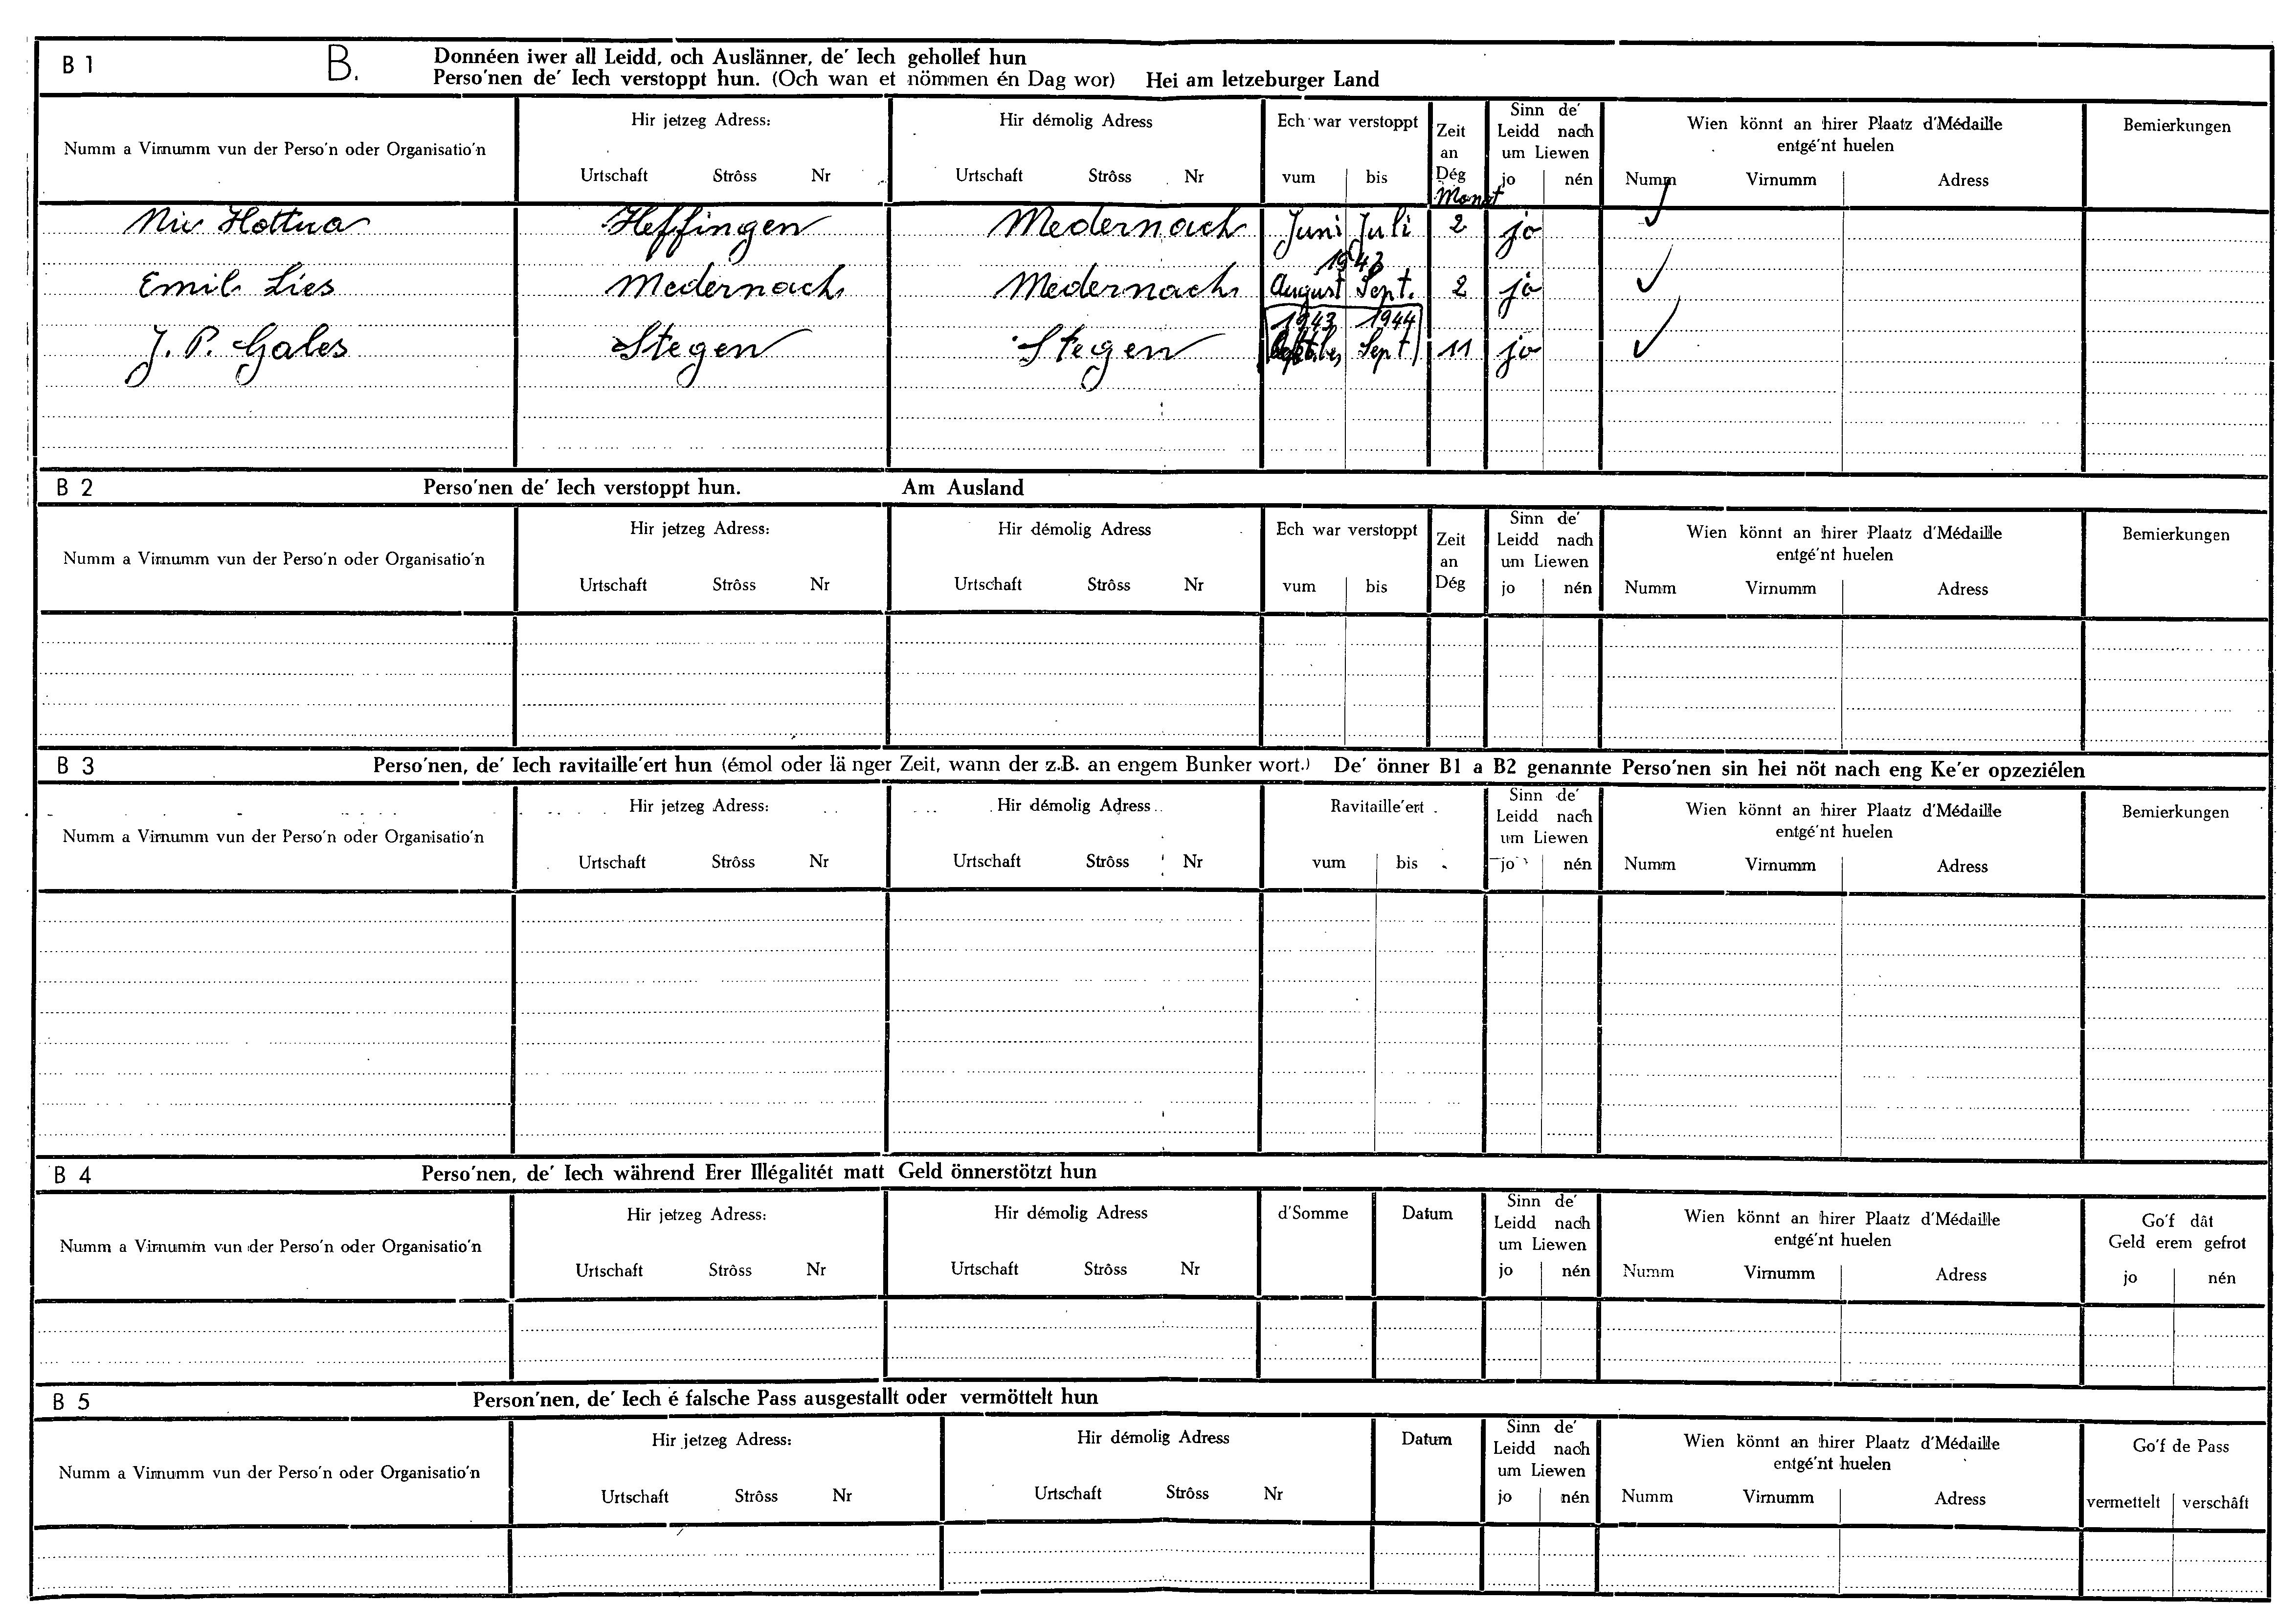 B 1 B. Donnéen iwer all Leidd, och Auslänner, de' Iech gehollef hun
Perso'nen de' Iech verstoppt hun. (Och wan et nömmen én Dag wor) Hei am letzeburger Land
Numm a Virnumm vun der Perso'n oder Organisatio'n
Hir jetzeg Adress:
Urtschaft Strôss Nr
Hir démolig Adress
Urtschaft Strôss Nr
Ech war verstoppt
vum bis
Zeit
an
Dég
Monat
Sinn de'
Leidd nach
um Liewen
jo nén
Wien könnt an hirer Plaatz d'Médaille
entgé'nt huelen
Numm Virnumm Adress
Bemierkungen
Nic Hottua Heffingen Medernach Juni Juli 2 jo
1943
Emil Lies Medernach Medernach August Sept. 2 jo
1943 1944
J. P. Gales Stegen Stegen Sept 11 jo
B 2 Perso'nen de' Iech verstoppt hun. Am Ausland
Numm a Virnumm vun der Perso'n oder Organisatio'n
Hir jetzeg Adress:
Urtschaft Strôss Nr
Hir démolig Adress
Urtschaft Strôss Nr
Ech war verstoppt
vum bis
Zeit
an
Dég
Sinn de'
Leidd nach
um Liewen
jo nén
Wien könnt an hirer Plaatz d'Médaille
entgé'nt huelen
Numm Virnumm Adress
Bemierkungen
B 3 Perso'nen, de' Iech ravitaille'ert hun (émol oder länger Zeit, wann der z.B. an engem Bunker wort.) De' önner B1 a B2 genannte Perso'nen sin hei nöt nach eng Ke'er opzeziélen
Numm a Virnumm vun der Perso'n oder Organisatio'n
Hir jetzeg Adress:
Urtschaft Strôss Nr
Hir démolig Adress
Urtschaft Strôss Nr
Ravitaille'ert
vum bis
Sinn de'
Leidd nach
um Liewen
jo nén
Wien könnt an hirer Plaatz d'Médaille
entgé'nt huelen
Numm Virnumm Adress
Bemierkungen
B 4 Perso'nen, de' Iech während Erer Illégalitét matt Geld önnerstötzt hun
Numm a Virnumm vun der Perso'n oder Organisatio'n
Hir jetzeg Adress:
Urtschaft Strôss Nr
Hir démolig Adress
Urtschaft Strôss Nr
d'Somme
Datum
Sinn de'
Leidd nach
um Liewen
jo nén
Wien könnt an hirer Plaatz d'Médaille
entgé'nt huelen
Numm Virnumm Adress
Go'f dât
Geld erem gefrot
jo nén
B 5 Person'nen, de' Iech é falsche Pass ausgestallt oder vermöttelt hun
Numm a Virnumm vun der Perso'n oder Organisatio'n
Hir jetzeg Adress:
Urtschaft Strôss Nr
Hir démolig Adress
Urtschaft Strôss Nr
Datum
Sinn de'
Leidd nach
um Liewen
jo nén
Wien könnt an hirer Plaatz d'Médaille
entgé'nt huelen
Numm Virnumm Adress
Go'f de Pass
vermettelt verschâft